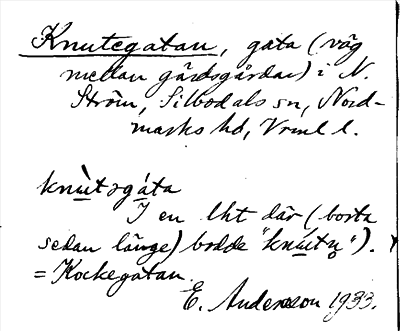 Knutegatan, gata (väg
mellan gärdsgårdar) i N.
Ström, Silbodals sn, Nord-
marks hd, Vrml l.
knùtəgáta
I en lht där (borta
sedan länge) bodde "knùtn̥").
= Kockegatan.
E. Andersson 1933.